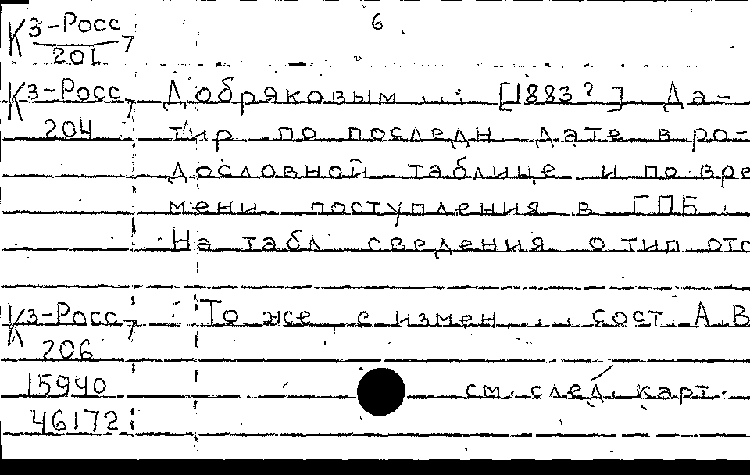 6
К 3-Росс 7
201
К 3-Росс 7 Добряковым ...: [1883?] Да-
204 тир по последн дате в ро-
дословной таблице и по вре
мени поступления в ГПБ.
На табл сведения о тип отс
К 3-Росс 7 То же с измен ... сост А В
206
15940 см. след. карт.
46172